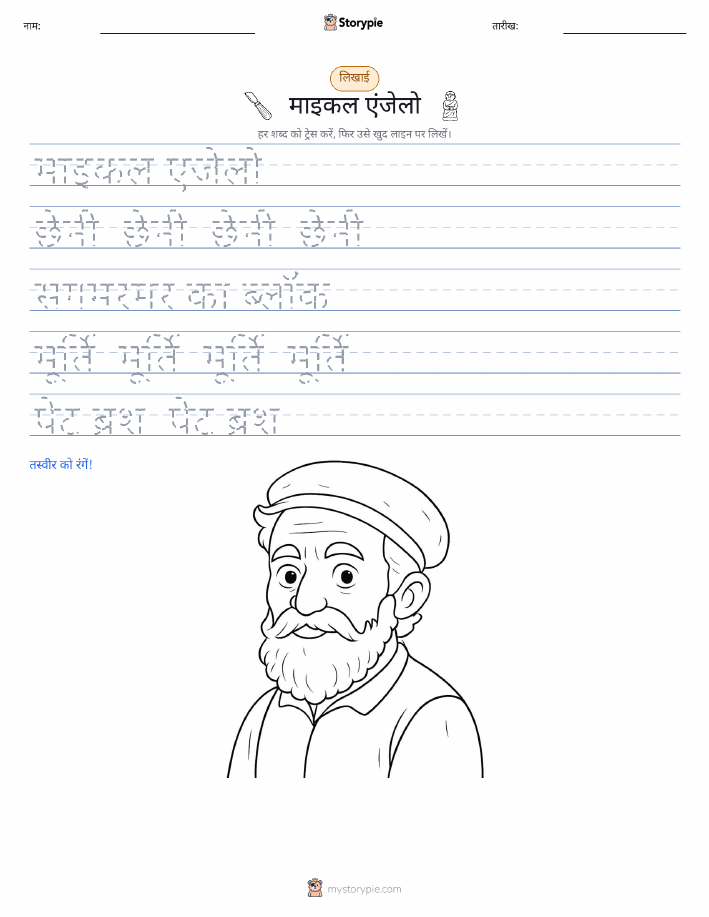 नाम:
Storypie
तारीख:
लिखाई
माइकल एंजेलो
हर शब्द को ट्रेस करें, फिर उसे खुद लाइन पर लिखें।
माइकल एजेलो
छेनी छेनी छेनी छेनी
सगमरमर का ब्लॉक
मूर्ति मूर्ति मूर्ति मूर्ति
पेट ब्रश पेट ब्रश
तस्वीर को रंगें!
mystorypie.com